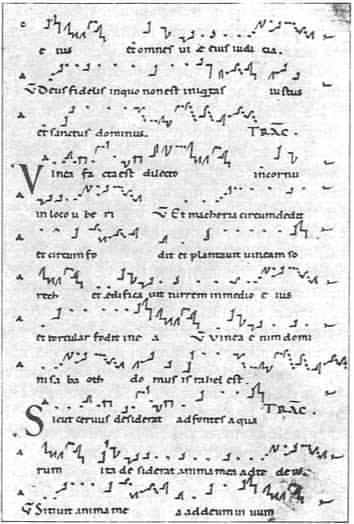 e ius et omnes vi e eius iudi cia.
V Deus fidelis in quo non est iniqtas iustus
et sanctus dominus. TRAC.
Vinea fa cta est dilecto in cornu
in loco u be ri V Et maceria circumdedit
et circum fo dit et plantavit vineam so
rech et edifica vit turrem in medio e ius
et torcular fodit in e a V Vinea e nim domi
ni sa ba oth do mus israhel est.
TRAC.
Sicut cervus desiderat ad fontes aqua
rum ita de siderat anima mea ad te deus
V Sitivit anima me a ad deum vivum